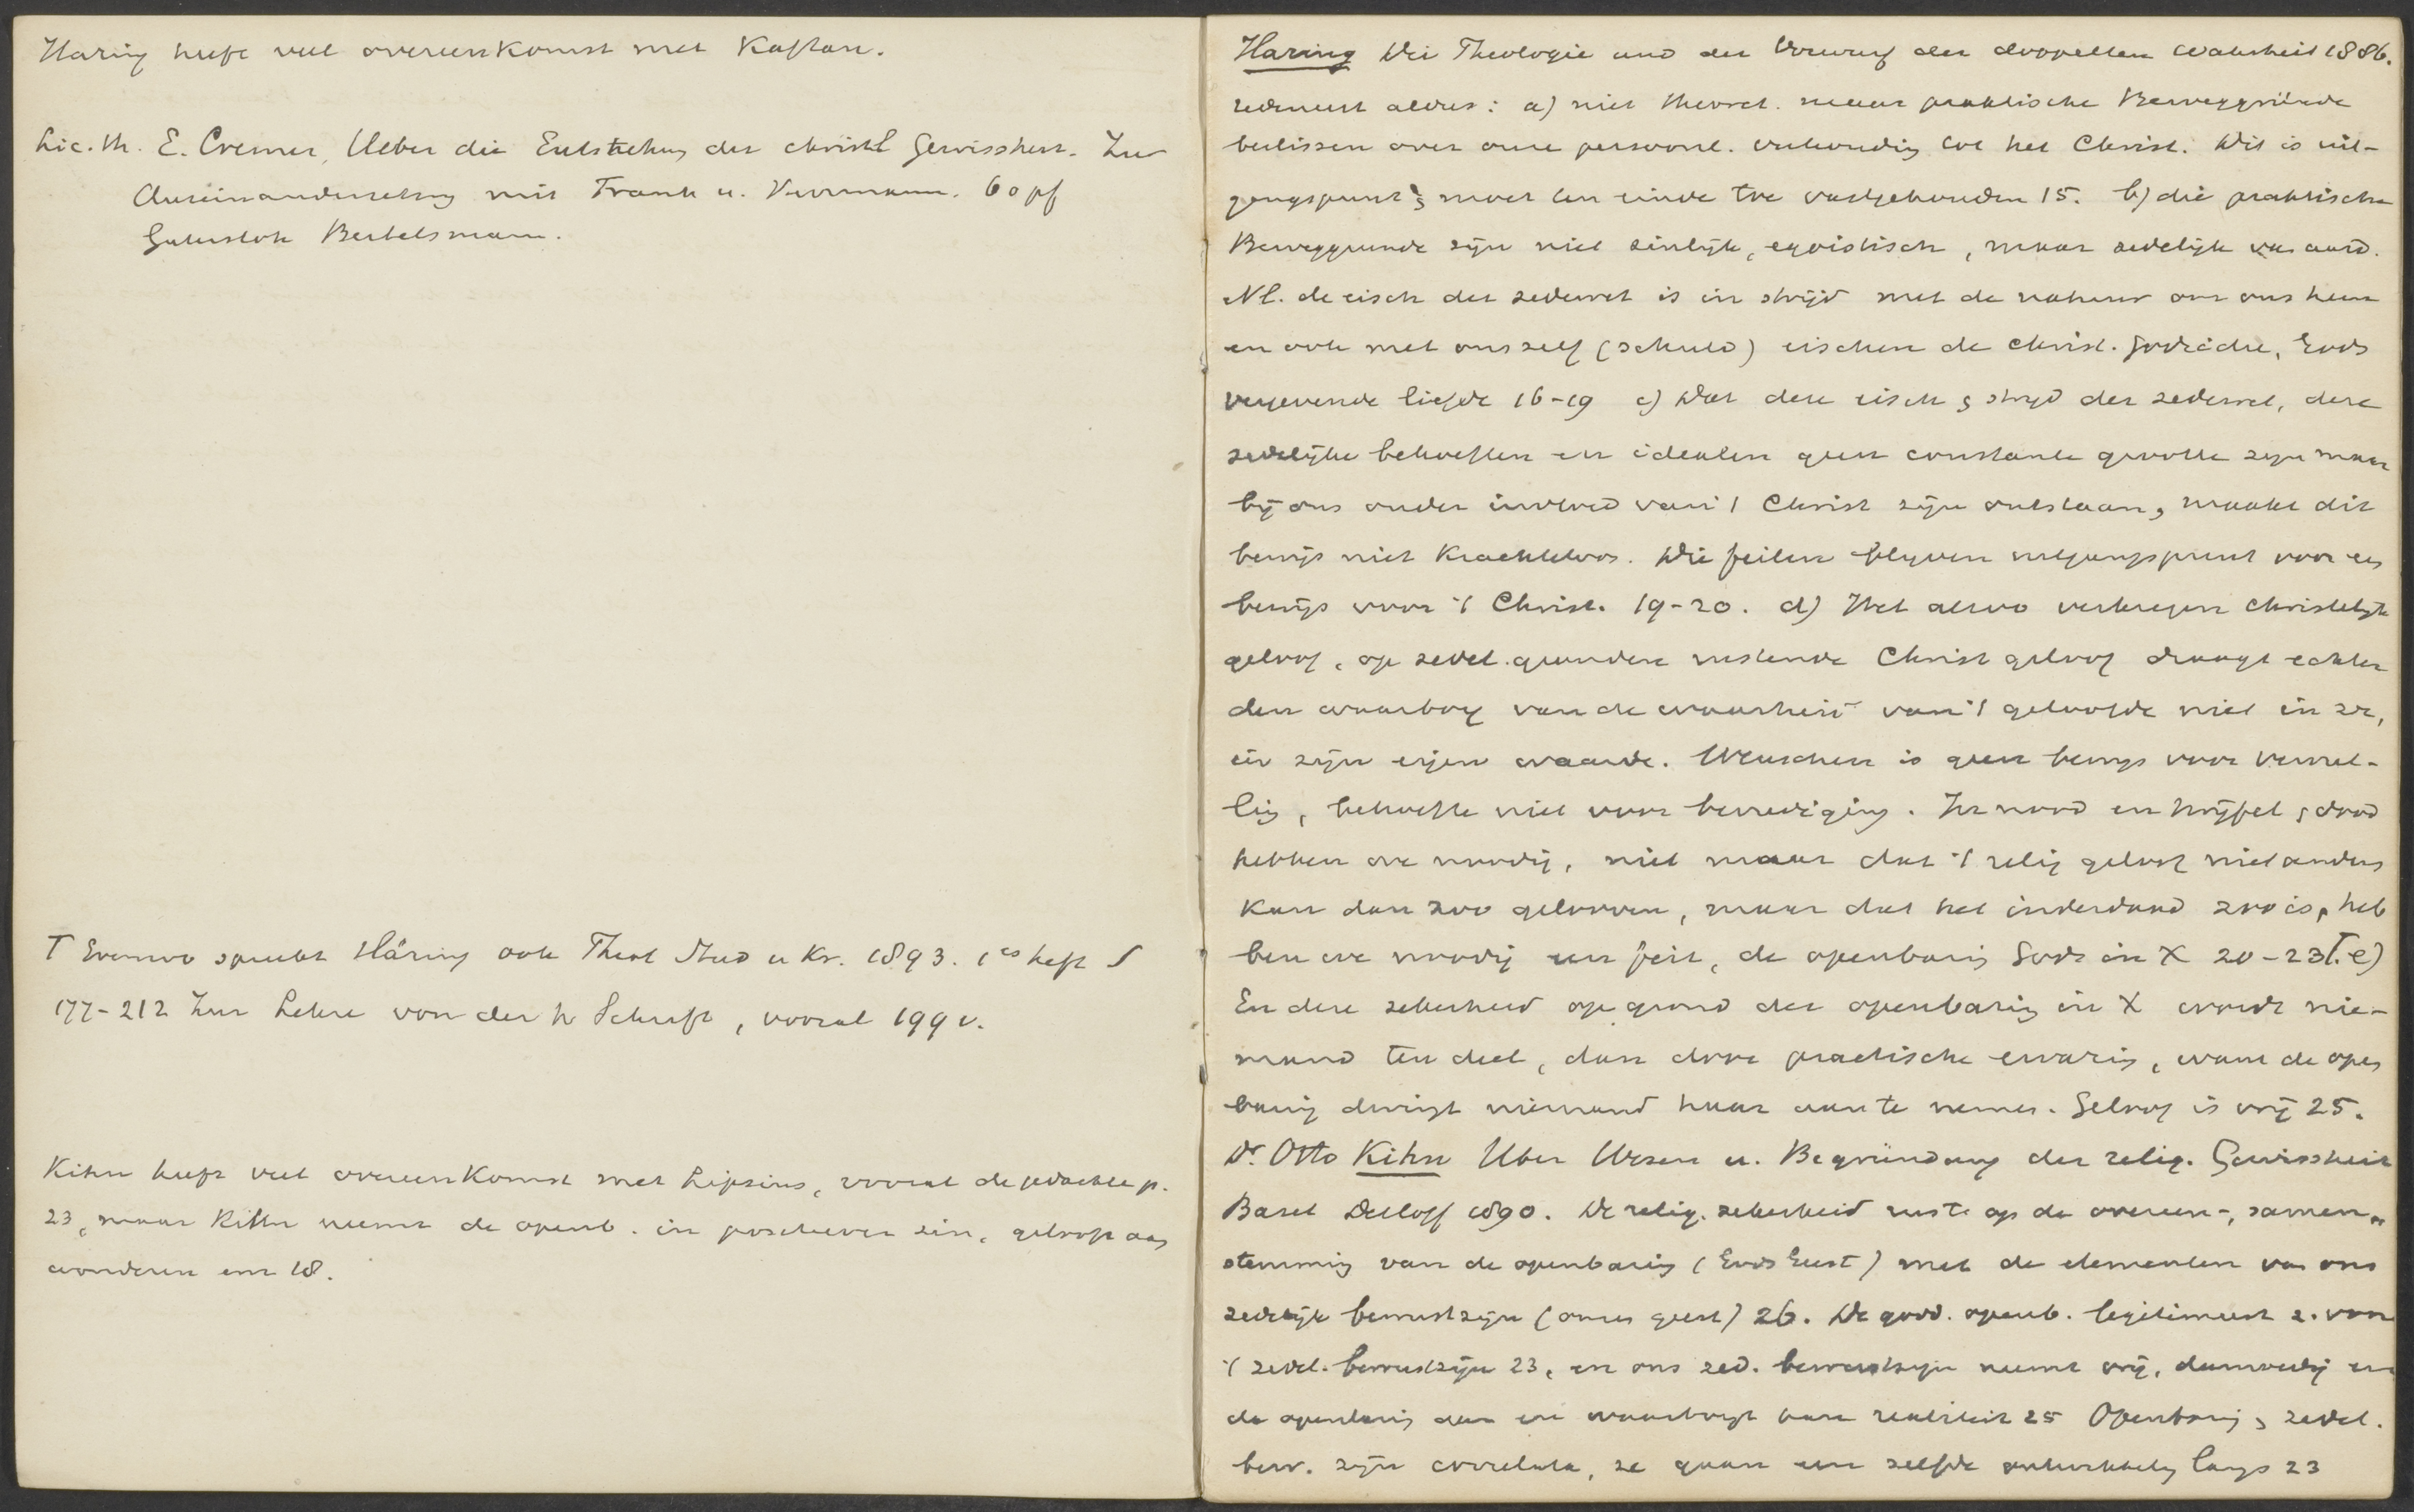 Haring heeft veel overeenkomst met Kaftan.
Lic. th. E. Cremer, Ueber die Entstehung der christl Gewissheit. Zur
Auseinandersetzung mit Frank u. Herrmann. 60 pf
Gutersloh Bertelsmann.
T Evenzoo spreekt Häring ook Theol Stud u Kr. 1893. 1es heft S
177-212 Zur Lehre von der h Schrift, vooral 199 v.
Kihn heeft veel overeenkomst met Lipsius, vooral de gedachte p.
23, maar Kihn neemt de openb. in positieven zin, gelooft aan
wonderen enz 18.
Haring Die Theologie und der Vorwurf der doppelten Wahrheit 1886.
redeneert aldus: a) niet theoret. maar praktische Beweggründe
beslissen over onze persoonl. verhouding tot het Christ. Dit is uit-
gangspunt & moet ten einde toe vastgehouden 15. b) die praktische
Beweggrunde zijn niet zinlijk, egoistisch, maar zedelijk van aard.
Nl. de eisch der zedewet is in strijd met de natuur om ons heen
en ook met ons zelf (schuld) eischen de Christ. Godsidee, Gods
vergevende liefde 16-19 c) Dat deze eisch & strijd der zedewet, deze
zedelijke behoeften en idealen geen constante grootte zijn maar
bij ons onder invloed van 't Christ zijn ontstaan, maakt dit
bewijs niet krachteloos. Die feiten blijven uitgangspunt voor een
bewijs voor 't Christ. 19-20. d) Het alzoo verkregen christelijk
geloof, op zedel. gronden rustende Christ geloof draagt echter
den waarborg van de waarheid van 't geloofde niet in zich,
in zijn eigen waarde. Wenschen is geen bewijs voor vervul-
ling, behoefte niet voor bevrediging. In nood en twijfel & dood
hebben we noodig, niet maar dat 't relig geloof niet anders
kan dan zoo gelooven, maar dat het inderdaad zoo is, heb
ben we noodig een feit, de openbaring Gods in X 20-23T. e)
En deze zekerheid op grond der openbaring in X wordt nie-
mand ten deel, dan door practische ervaring, want de open
baring dwingt niemand haar aan te nemen. Geloof is vrij 25.
Dr. Otto Kihn Uber Wesen u. Begründung der relig. Gewissheit
Basel Detloff 1890. De relig. zekerheid rust op de overeen-, samen-
stemming van de openbaring (Gods Geest) met de elementen van ons
zedelijk bewustzijn (onzen geest) 26. De godd. openb. legitimeert z. voor
't zedel. bewustzijn 23, en ons zed. bewustzijn neemt vrij,
de openbaring aan en waarborgt hare realiteit 25 Openbaring & zedel.
bew. zijn correlata, ze gaan een zelfde ontwikkeling langs 23